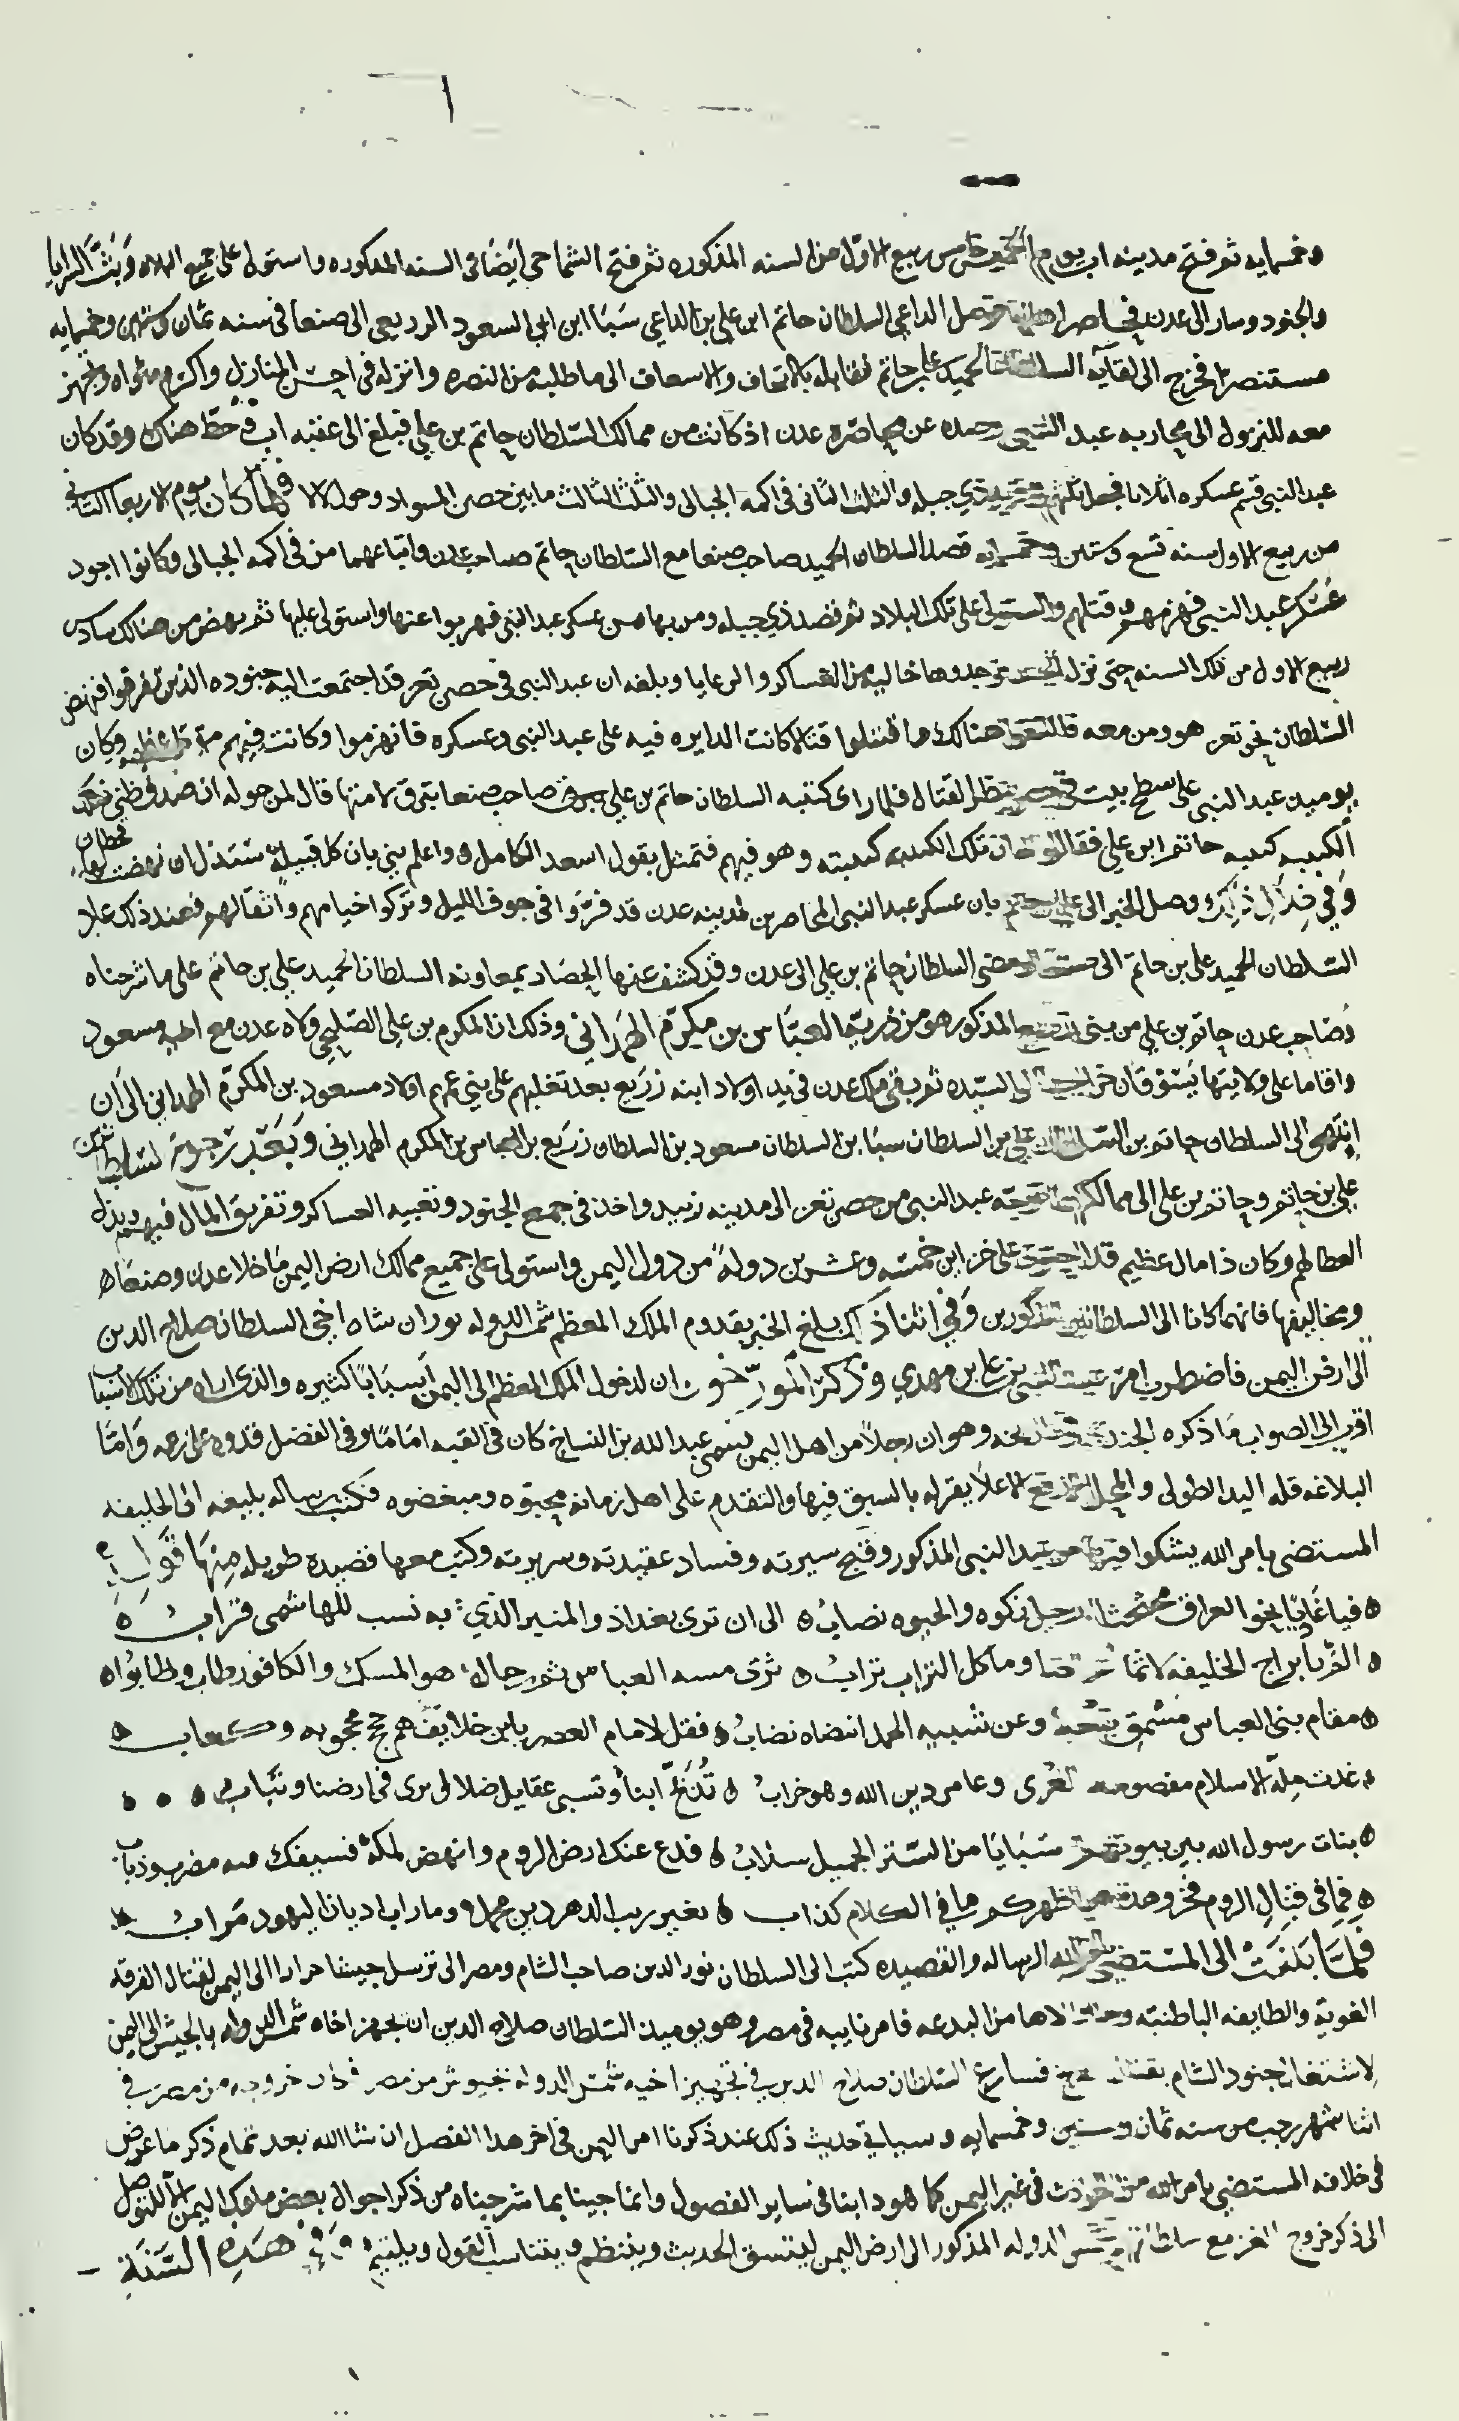 وخمسمايه ثم فتح مدينه اب يوم الخميس خامس ربيع الاول من السنه المذكوره ثم فتح الشماحي ايضا في السنه المذكوره واستولى على جميع البلاد وبث السرايا
والجنود وسار الى عدن فحاصر اهلها فوصل الداعي السلطان حاتم ابن علي بن الداعي سبا ابن ابي السعود الزريعي الى صنعا في سنه ثمان وستين وخمسمايه
مستنصرا فخرج الى لقايه السلطان الحميد علي بن حاتم فقابله بالاتحاف والاسعاف الى ما طلبه من النصره وانزله في احسن المنازل واكرم مثواه وتجهز
معه للنزول الى محاربه عبد النبي وصده عن محاصره عدن اذ كانت من ممالك السلطان حاتم بن علي فبلغ الى عقبه اب فحط هناك وقد كان
عبد النبي قسم عسكره اثلاثا فجعل ثلثهم في ذي جبله والثلث الثاني في اكمه الجبالي والثلث الثالث ما بين حصن السواد وحول فلما كان يوم الاربعا الثاني
من ربيع الاول سنه تسع وستين وخمسمايه قصد السلطان الحميد صاحب صنعا مع السلطان حاتم صاحب عدن واتباعهما من في اكمه الجبالي وكانوا اجود
عسكر عبد النبي فهزمهم وقتلهم واستولى على تلك البلاد ثم قصد ذي جبله ومن بها من عسكر عبد النبي فهربوا عنها واستولى عليها ثم نهض من هنالك سادس
ربيع الاول من تلك السنه حتى نزل فوجدوها خاليه من العساكر والرعايا وبلغه ان عبد النبي في حصن تعز قد اجتمعت اليه جنوده الذين تفرقوا فنهض
السلطان نحو تعز هو ومن معه فالتقوا هنالك واقتتلوا قتالا كانت الدايره فيه على عبد النبي وعسكره فانهزموا وكانت فيهم مقتله عظيمه وكان
يوميذ عبد النبي على سطح بيت في حصنه ينظر القتال فلما راى كتيبه السلطان حاتم بن علي صاحب صنعا لامتها قال لمن حوله ان صدق ظني فهذه
الكتيبه كتيبه حاتم ابن علي فقالوا له ان تلك الكتيبه كتيبته وهو فيهم فتمثل بقول اسعد الكامل ٥ واعلم بني بان كل قبيله ستذل ان نهضت لها قحطان
وفي خلال ذلك وصل الخبر الى علي بن حاتم بان عسكر عبد النبي المحاصرين لمدينه عدن قد فروا في جوف الليل وتركوا خيامهم واثقالهم فعند ذلك عاد
السلطان الحميد علي بن حاتم الى صنعا ومضى السلطان حاتم بن علي الى عدن وقد كشف عنها الحصار بمعاونه السلطان الحميد علي بن حاتم على ما شرحناه
وصاحب عدن حاتم بن علي من بني زريع المذكور هو من ذريه العباس بن مكرم الهمداني وذلك ان المكرم بن علي الصليحي ولاه عدن مع اخيه مسعود
واقاما على ولايتها يسوقان خراجها الى السيده ثم بقي ملك عدن في يد اولاد ابنه زريع بعد تغلبهم على بني عمهم اولاد مسعود بن المكرم الهمداني الى ان
انتهى الى السلطان حاتم بن السلطان علي بن السلطان سبا بن السلطان مسعود بن السلطان زريع بن العباس بن المكرم الهمداني وبعد رجوع السلطانين
علي بن حاتم وحاتم بن علي الى ممالكهما توجه عبد النبي من حصن تعز الى مدينه زبيد واخذ في جمع الجنود وتعبيه العساكر وتفريق المال فيهم وبذل
العطا لهم وكان ذا مال عظيم قد احتوى على خزاين خمسه وعشرين دوله من دول اليمن واستولى على جميع ممالك ارض اليمن ما خلا عدن وصنعا
ومخاليفها فانهما كانا الى السلطانين المذكورين وفي اثنا ذلك بلغ الخبر بقدوم الملك المعظم شمس الدوله توران شاه اخي السلطان صلاح الدين
الى ارض اليمن فاضطرب امر عبد النبي بن علي بن مهدي وذكر المورخون ان لدخول الملك المعظم الى اليمن اسبابا كثيره والذي اراه من تلك الاسباب
اقرب الى الصواب ما ذكره الجندي في تاريخه وهو ان رجلا من اهل اليمن يسمى عبد الله بن النساخ كان في الفقه اماما وفي الفضل قدوه واما
البلاغه فله اليد الطولى والمحل الارفع الاعلا يقر له بالسبق فيها والتقدم على اهل زمانه محبوه ومبغضوه فكتب رساله بليغه الى الخليفه
المستضي بامر الله يشكوا فيها من عبد النبي المذكور وقبح سيرته وفساد عقيدته وسريرته وكتب معها قصيده طويله منها قوله
٥ فيا غاديا نحو العراق ٥ الى ان ترى بغداد والمنبر الذي به نسب للهاشمي قراب ٥
٥ ابراج الخليفه لاثما وما كل التراب تراب ٥ ثرى مسه العباس هو المسك والكافور طاب وطابوا ٥
٥ مقام بني العباس وعن شيبه الحمد انتضاه نصاب ٥ فقل لامام العصر يا بن خلايف هم حج محجوبه وكعاب ٥
٥ غدت مله الاسلام مفصومه العرى وعامر دين الله وهو خراب ٥ ابنا وتسبى عقايل ضلالى يرى في ارضنا وتباب ٥ ٥ ٥
٥ بنات رسول الله بين بيوتهم سبايا من الستر الجميل سلاب ٥ فدع عنك ارض الروم وانهض لمكه فسيفك
٥ فما في قتال الروم فخر وما في الكلام كذاب ٥ بغير ريب الدهر دين محمد وما راب اديان اليهود مراب ٥
فلما بلغت الى المستضي الرساله والقصيده كتب الى السلطان نور الدين صاحب الشام ومصر الى ترسل جيشا جرارا الى اليمن لقتال الفرقه
الغويه والطايفه الباطنيه من البدعه فامر نايبه في مصر وهو يوميذ السلطان صلاح الدين ان يجهز اخاه شمس الدوله بالجيش الى اليمن
لاشتغال جنود الشام بقتال فسارع السلطان صلاح الدين في تجهيز اخيه شمس الدوله بجيوش من مصر فكان خروجه من مصر في
اثنا شهر رجب من سنه ثمان وستين وخمسمايه وسياتي حديث ذلك عند ذكرنا امر اليمن في اخر هذا الفصل ان شا الله بعد تمام ذكر ما عرض
في خلافه المستضي بامر الله من الحوادث في غير اليمن كما هو دابنا في ساير الفصول وانما جينا بما شرحناه من ذكر احوال بعض ملوك اليمن الا للتوصل
الى ذكر خروج الغز مع سلطانهم شمس الدوله المذكور الى ارض اليمن ليتسق الحديث وينتظم ويتناسب القول ويلتيم وفي هذه السنه